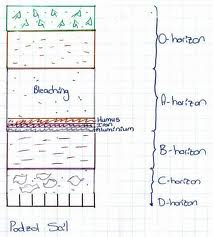 O-horizon
Bleaching
A-horizon
Humus
Iron
Aluminium
B-horizon
C-horizon
D-horizon
Podzol Soil